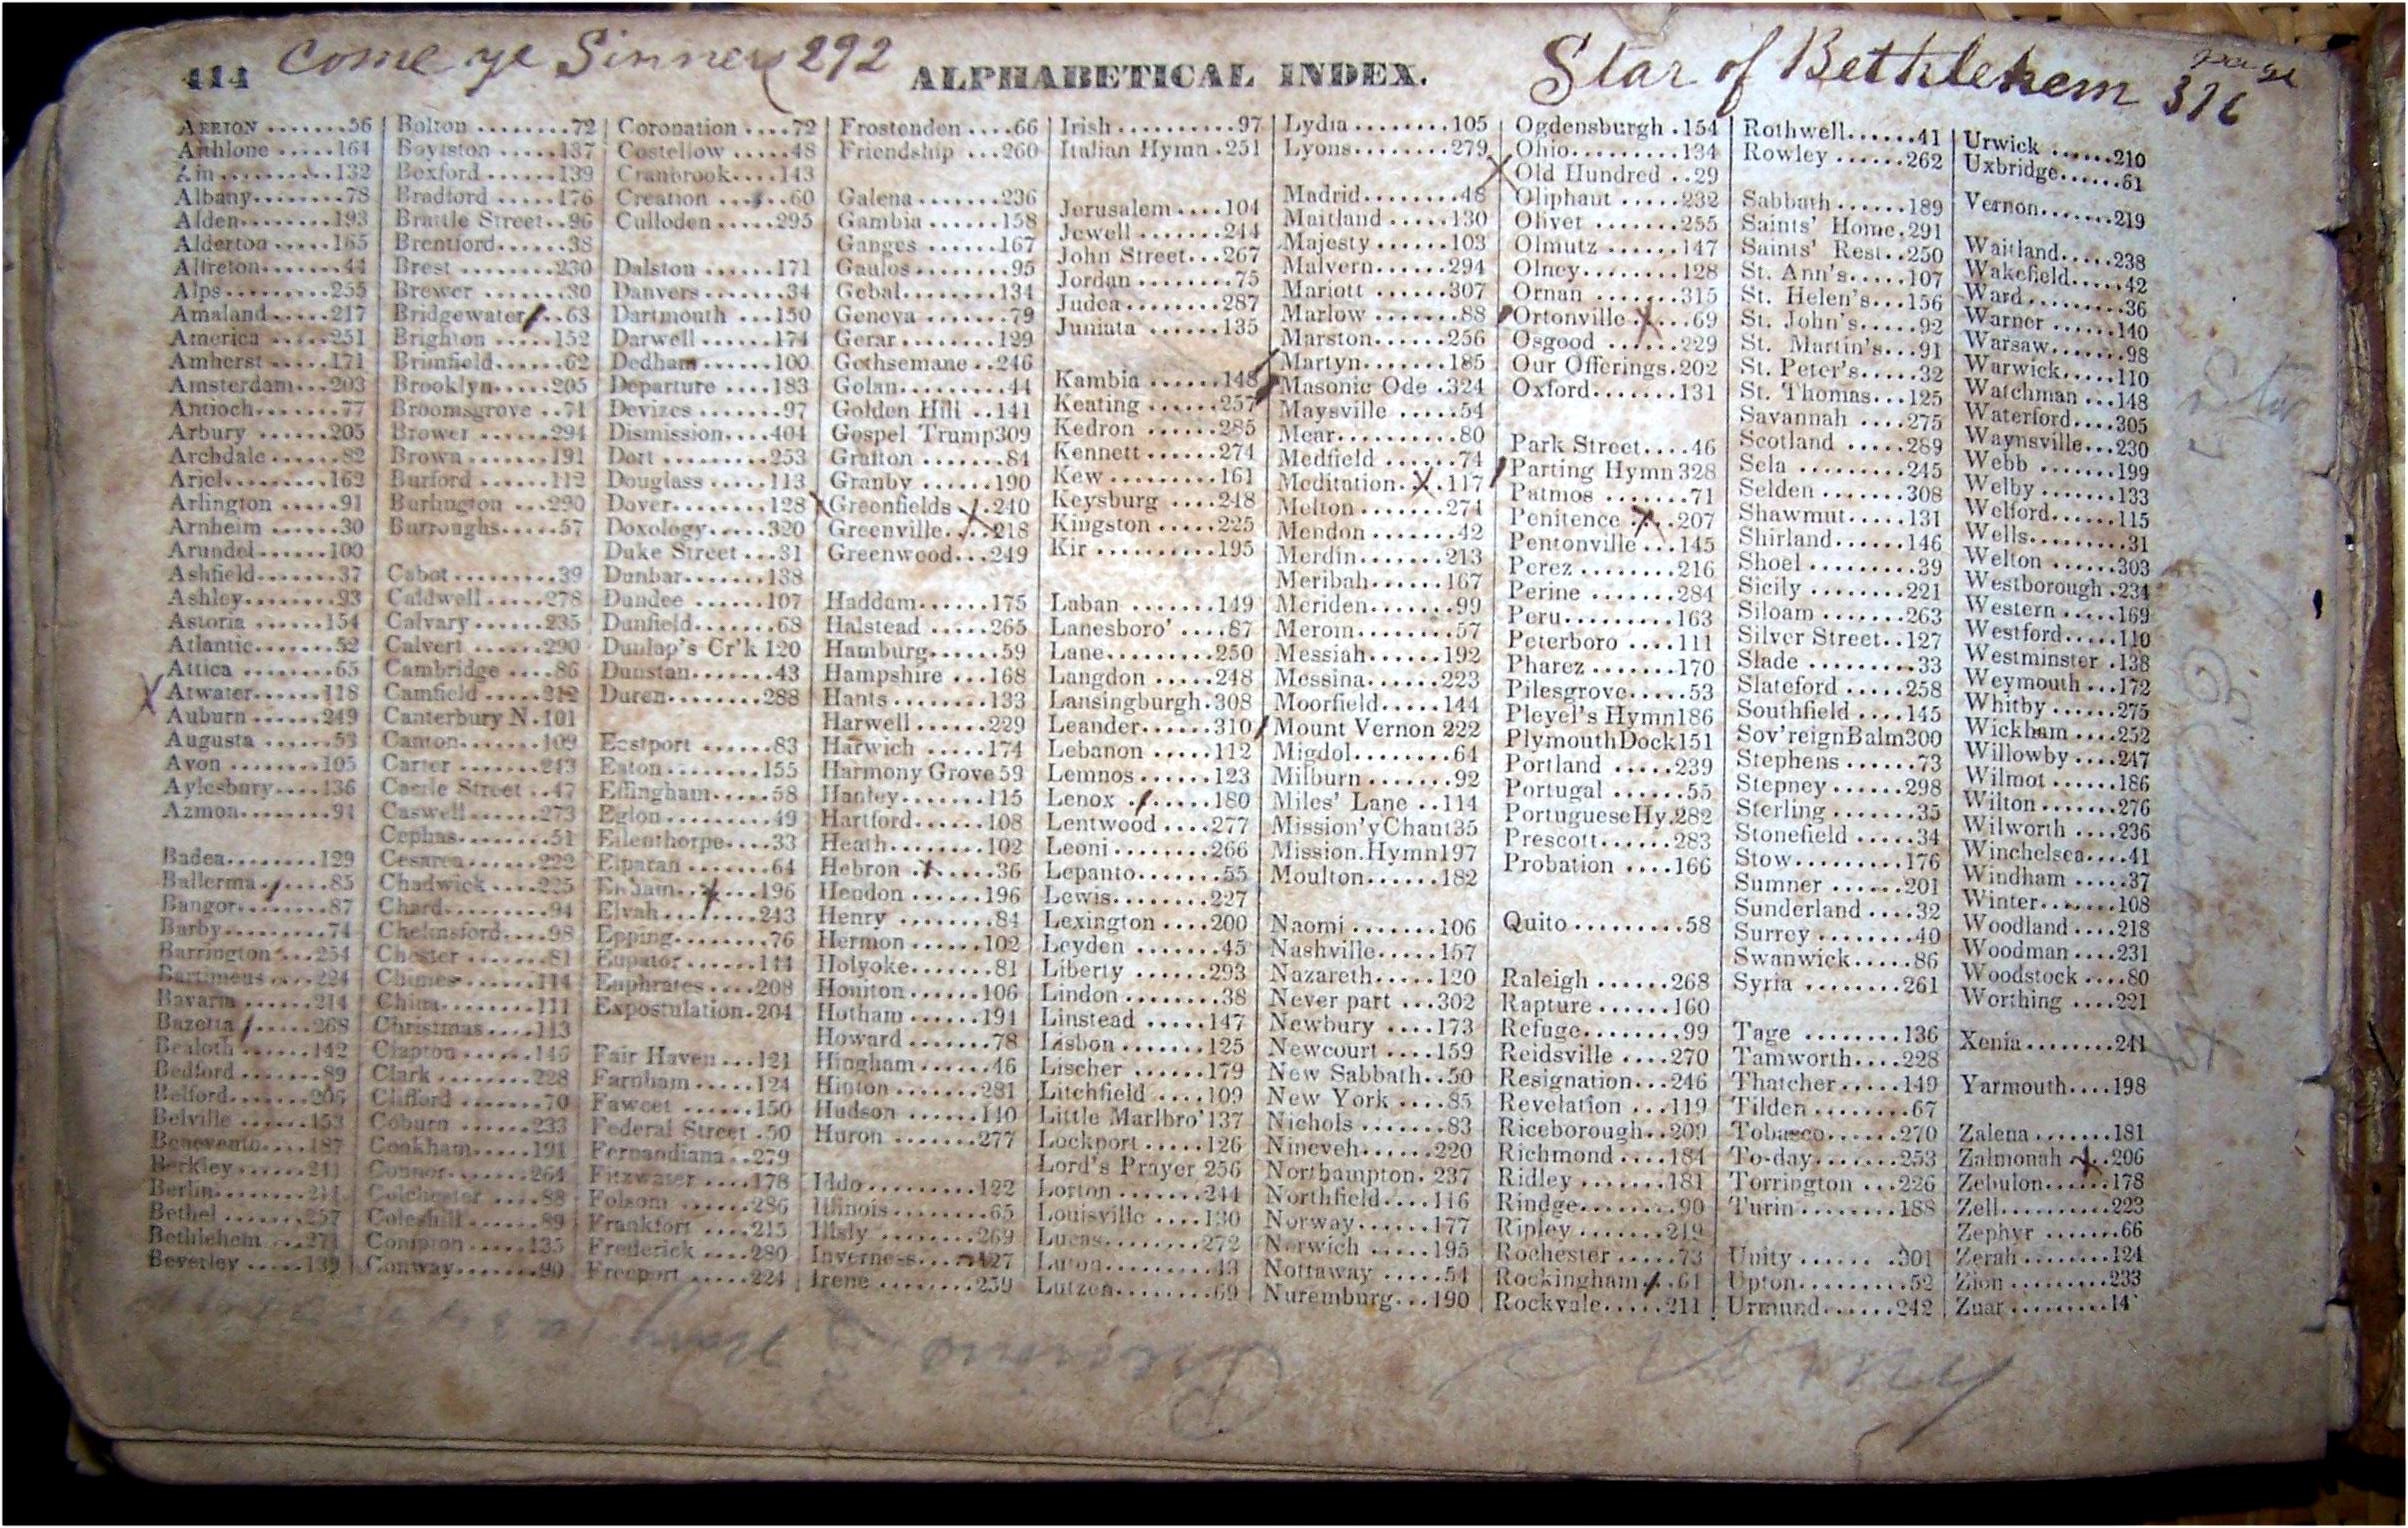 come ye Sinners 292
Star of Bethlehem page
316
414
ALPHABETICAL INDEX.
Athlone .....164
132
Albany........78
Alden........193
Alderton .....165
Alfreton.......44
Alps.........255
Amaland.....217
America .....251
Amherst .....171
Amsterdam...203
Antioch.......77
Arbury ......205
Archdale ......82
Ariel.........162
Arlington .....91
Arnheim ......30
Arundel......100
Ashfield.......37
Ashley........93
Astoria ......154
Atlantic.......52
Attica ........65
X Atwater......118
Auburn ......249
Augusta ......53
Avon ........105
Aylesbury....136
Azmon........91
Badea........129
Ballerma......85
Bangor.......87
Barby........74
Barrington...254
Bartimeus ...224
Bavaria ......214
Bazetta ......268
Bealoth ......142
Bedford .......89
Belford.......206
Belville ......153
Benevento....187
Berkley......211
Berlin........214
Bethel .......257
Bethlehem ...271
Beverley .....139
Bolton ........72
Boylston .....137
Boxford......139
Bradford .....176
Brattle Street..96
Brentford.....38
Brest ........230
Brewer .......30
Bridgewater...63
Brighton .....152
Brimfield......62
Brooklyn.....205
Broomsgrove ..71
Brower ......294
Brown .......191
Burford ......112
Burlington ...290
Burroughs.....57
Cabot .........39
Caldwell .....278
Calvary ......235
Calvert ......290
Cambridge ....86
Camfield .....212
Canterbury N.101
Canton.......109
Carter .......243
Castle Street ..47
Caswell......273
Cephas.......51
Cesarea......222
Chadwick ....225
Chard.........94
Chelmsford....98
Chester .......81
Chimes ......114
China........111
Christmas....113
Clapton ......146
Clark ........228
Clifford .......70
Coburn ......233
Cookham.....191
Connor.......264
Colchester ....88
Coleshill......89
Compton .....135
Conway.......90
Coronation ....72
Costellow .....48
Cranbrook....143
Creation ......60
Culloden.....295
Dalston ......171
Danvers.......34
Dartmouth ...150
Darwell......174
Dedham.....100
Departure ....183
Devizes .......97
Dismission....404
Dort .........253
Douglass .....113
Dover........128
Doxology.....320
Duke Street ...31
Dunbar.......138
Dundee ......107
Dunfield......68
Dunlap's Cr'k 120
Dunstan......43
Duren........288
Eastport ......83
Eaton........155
Effingham.....58
Eglon ........49
Ellenthorpe....33
Elparan .......64
Elsham.......196
Elvah........243
Epping........76
Eupator ......144
Euphrates ....208
Expostulation.204
Fair Haven ...121
Farnham .....124
Fawcet ......150
Federal Street .50
Fernandiana..279
Fitzwater ....178
Folsom ......286
Frankfort ....215
Frederick ....280
Freeport .....224
Frostenden ....66
Friendship ...260
Galena.......236
Gambia ......158
Ganges ......167
Gaulos.......95
Gebal........134
Geneva .......79
Gerar........129
Gethsemane ..246
Golan........44
Golden Hill ..141
Gospel Trump309
Grafton .......84
Granby ......190
X Greenfields X.240
Greenville....218
Greenwood...249
Haddam......175
Halstead .....265
Hamburg......59
Hampshire ...168
Hants ........133
Harwell ......229
Harwich .....174
Harmony Grove 59
Hanley.......115
Hartford......108
Heath........102
Hebron .X.....36
Hendon ......196
Henry ........84
Hermon ......102
Holyoke.......81
Honiton ......106
Hotham ......191
Howard .......78
Hingham ......46
Hinton .......281
Hudson ......140
Huron .......277
Iddo.........122
Illinois........65
Illsly .........269
Inverness....127
Irene ........259
Irish..........97
Italian Hymn.251
Jerusalem....104
Jewell .......244
John Street...267
Jordan .......75
Judea........287
Juniata ......135
Kambia ......148
Keating ......257
Kedron ......285
Kennett ......274
Kew .........161
Keysburg ....248
Kingston .....225
Kir ..........195
Laban .......149
Lanesboro' ....87
Lane.........250
Langdon .....248
Lansingburgh.308
Leander......310
Lebanon .....112
Lemnos ......123
Lenox .......180
Lentwood ....277
Leoni ........266
Lepanto.......55
Lewis........227
Lexington ....200
Leyden .......45
Liberty ......293
Lindon ........38
Linstead .....147
Lisbon .......125
Lischer ......179
Litchfield ....109
Little Marlbro'137
Lockport .....126
Lord's Prayer 256
Lorton .......244
Louisville ....130
Lucas........272
Luton.........43
Lutzen........69
Lydia ........105
Lyons........279
Madrid........48
Maitland .....130
Majesty ......103
Malvern......294
Mariott ......307
Marlow .......88
Marston......256
Martyn.......185
Masonic Ode .324
Maysville .....54
Mear..........80
Medfield ......74
Meditation.X.117
Melton .......274
Mendon ......42
Merdin.......213
Meribah......167
Meriden.......99
Merom........57
Messiah......192
Messina......223
Moorfield.....144
Mount Vernon 222
Migdol.......64
Milburn .......92
Miles' Lane ..114
Mission'yChant35
Mission.Hymn197
Moulton......182
Naomi .......106
Nashville.....157
Nazareth.....120
Never part ...302
Newbury ....173
Newcourt ....159
New Sabbath..50
New York ....85
Nichols .......83
Nineveh......220
Northampton. 237
Northfield....116
Norway......177
Norwich .....195
Nottaway .....54
Nuremburg...190
Ogdensburgh .154
Ohio.........134
X Old Hundred ..29
Oliphant .....232
Olivet .......255
Olmutz ......147
Olney........128
Ornan .......315
Ortonville .X...69
Osgood ......229
Our Offerings.202
Oxford.......131
Park Street....46
Parting Hymn328
Patmos .......71
Penitence .X..207
Pentonville ...145
Perez ........216
Perine .......284
Peru.........163
Peterboro ....111
Pharez .......170
Pilesgrove.....53
Pleyel's Hymn186
PlymouthDock151
Portland .....239
Portugal ......55
PortugueseHy.282
Prescott......283
Probation ....166
Quito ..........58
Raleigh ......268
Rapture .....160
Refuge........99
Reidsville ....270
Resignation...246
Revelation ...119
Riceborough..209
Richmond ....184
Ridley .......181
Rindge........90
Ripley .......219
Rochester .....73
Rockingham...61
Rockvale.....211
Rothwell......41
Rowley ......262
Sabbath ......189
Saints' Home.291
Saints' Rest..250
St. Ann's.....107
St. Helen's...156
St. John's.....92
St. Martin's...91
St. Peter's.....32
St. Thomas...125
Savannah ....275
Scotland .....289
Sela .........245
Selden .......308
Shawmut.....131
Shirland......146
Shoel .........39
Sicily ........221
Siloam .......263
Silver Street..127
Slade .........33
Slateford .....258
Southfield ....145
Sov'reignBalm300
Stephens ......73
Stepney ......298
Sterling ......35
Stonefield .....34
Stow.........176
Sumner ......201
Sunderland ....32
Surrey ........40
Swanwick.....86
Syria ........261
Tage ........136
Tamworth....228
Thatcher.....149
Tilden ........67
Tobasco......270
To-day.......253
Torrington ...226
Turin........188
Unity .......301
Upton.........52
Urmund......242
Urwick ......210
Uxbridge......61
Vernon.......219
Waitland.....238
Wakefield.....42
Ward.........36
Warner ......140
Warsaw......98
Warwick.....110
Watchman ...148
Waterford....305
Waynsville...230
Webb .......199
Welby .......133
Welford......115
Wells.........31
Welton ......303
Westborough .234
Western .....169
Westford.....110
Westminster .138
Weymouth ...172
Whitby ......275
Wickham ....252
Willowby ....247
Wilmot ......186
Wilton .......276
Wilworth ....236
Winchelsea....41
Windham .....37
Winter.......108
Woodland ....218
Woodman ....231
Woodstock ....80
Worthing ....221
Xenia........241
Yarmouth....198
Zalena .......181
Zalmonah X..206
Zebulon......178
Zell..........223
Zephyr .......66
Zerah ........124
Zion .........233
Zuar .........14